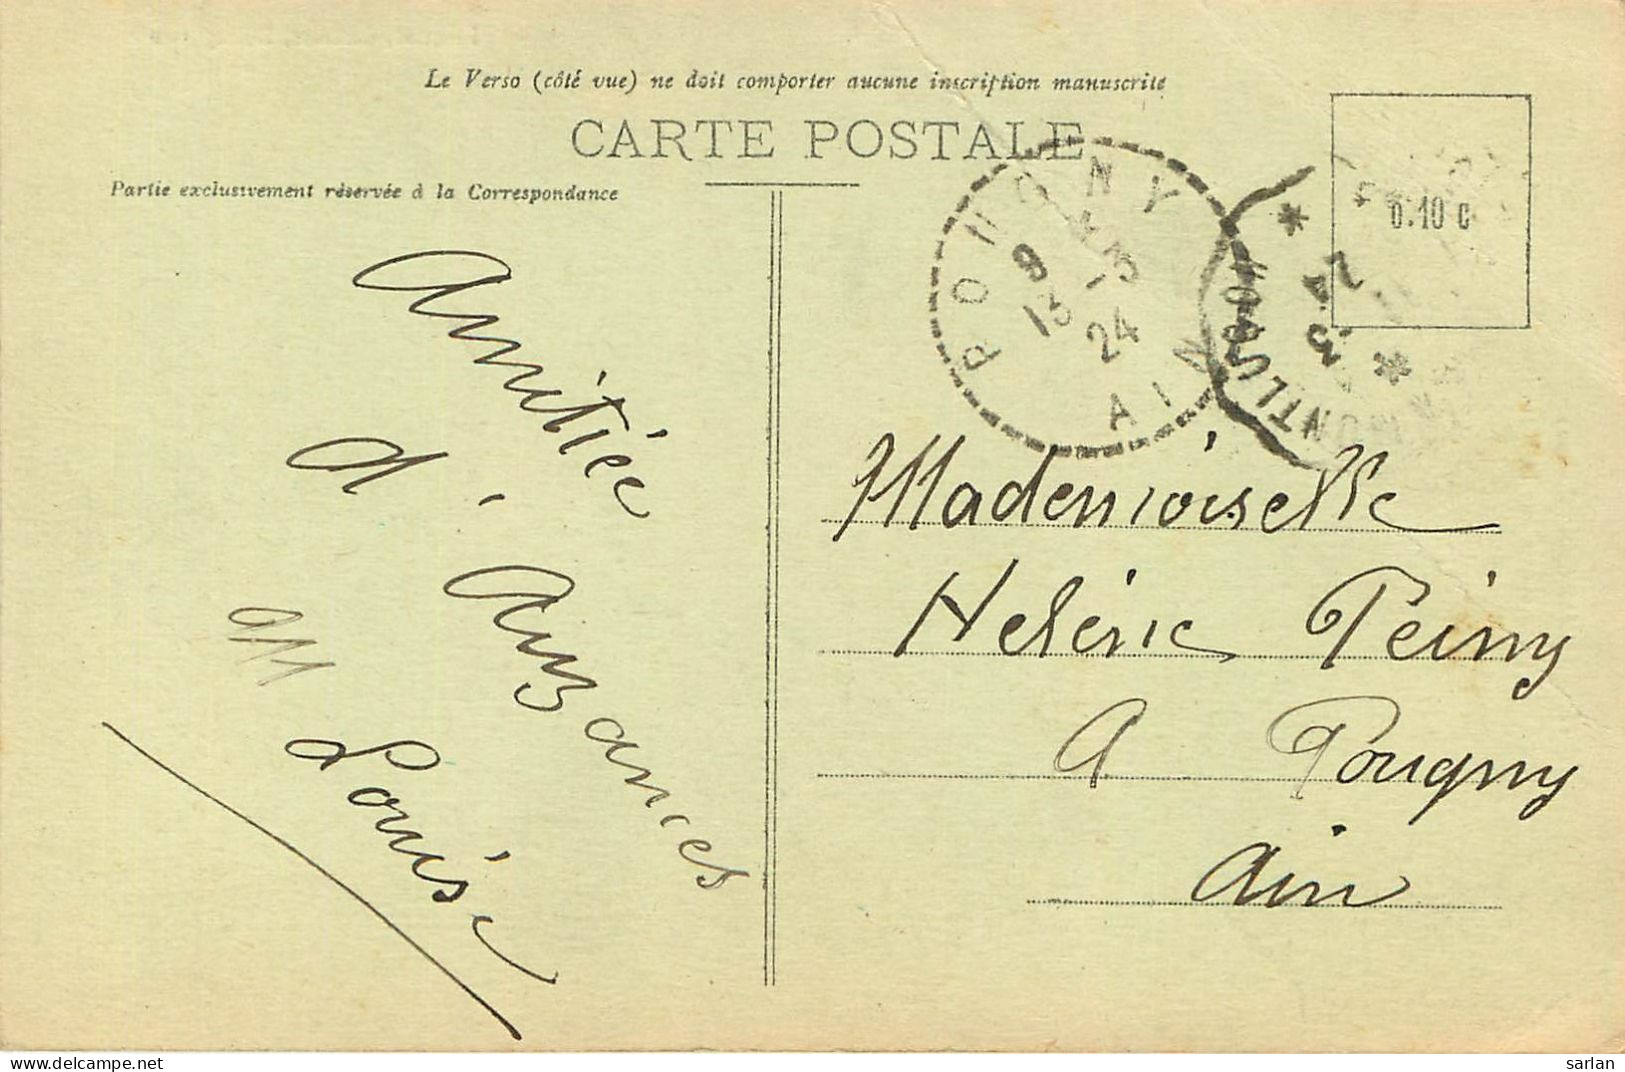 Le Verso (côté vue) ne doit comporter aucune inscription manuscrite
CARTE POSTALE
Partie exclusivement réservée à la Correspondance
0.10 c
POUGNY
9 13
-3
24
AIN
MONTLUÇON
Amitiée
d'Auzances
M Louise
Mademoiselle
Heléne Peiny
A Pougny
Ain
sarlan